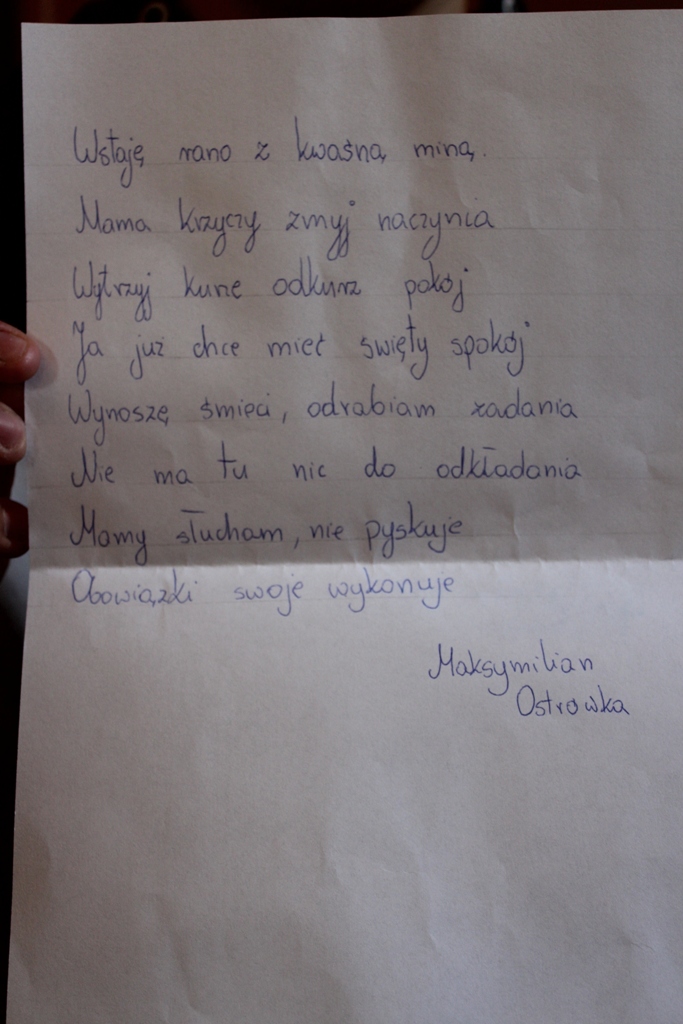 Wstaję rano z kwaśną miną.
Mama krzyczy zmyj naczynia
Wytrzyj kurze odkurz pokój
Ja już chce mieć święty spokój
Wynoszę śmieci, odrabiam zadania
Nie ma tu nic do odkładania
Mamy słucham, nie pyskuje
Obowiązki swoje wykonuje
Maksymilian
Ostrówka